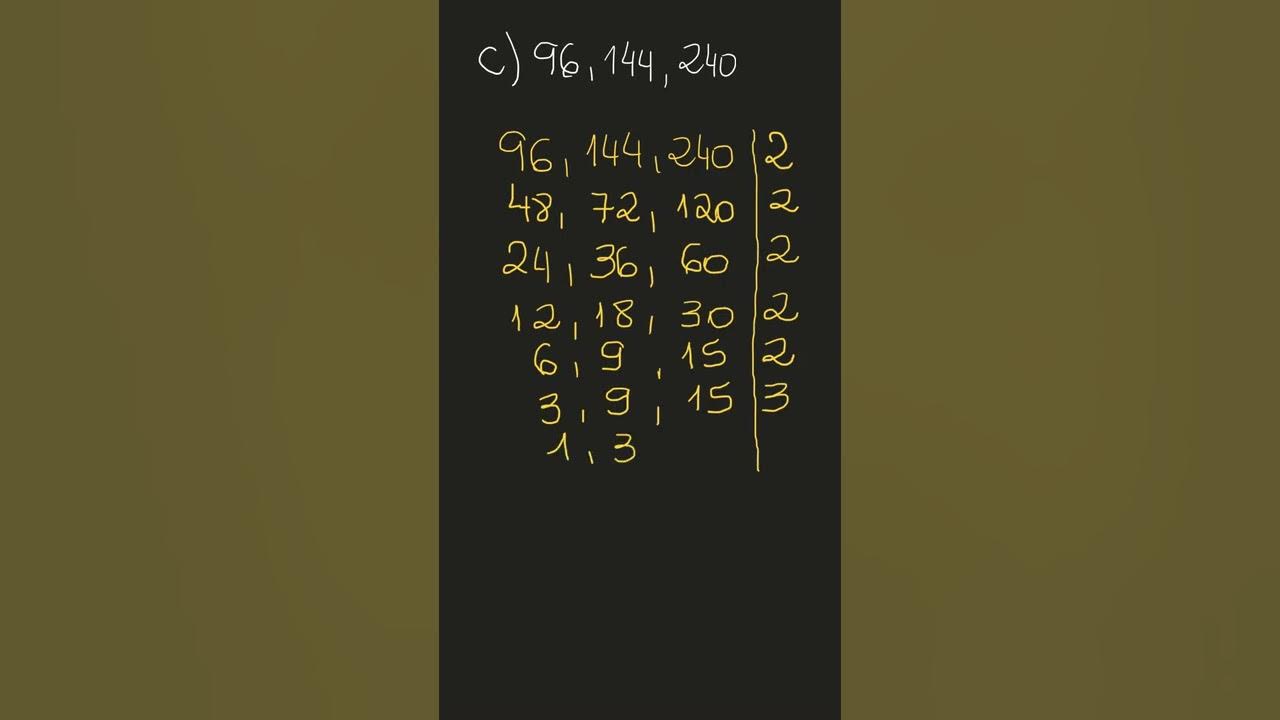 c) 96, 144, 240
96, 144, 240 | 2
48, 72, 120 | 2
24, 36, 60 | 2
12, 18, 30 | 2
6, 9, 15 | 2
3, 9, 15 | 3
1, 3 |